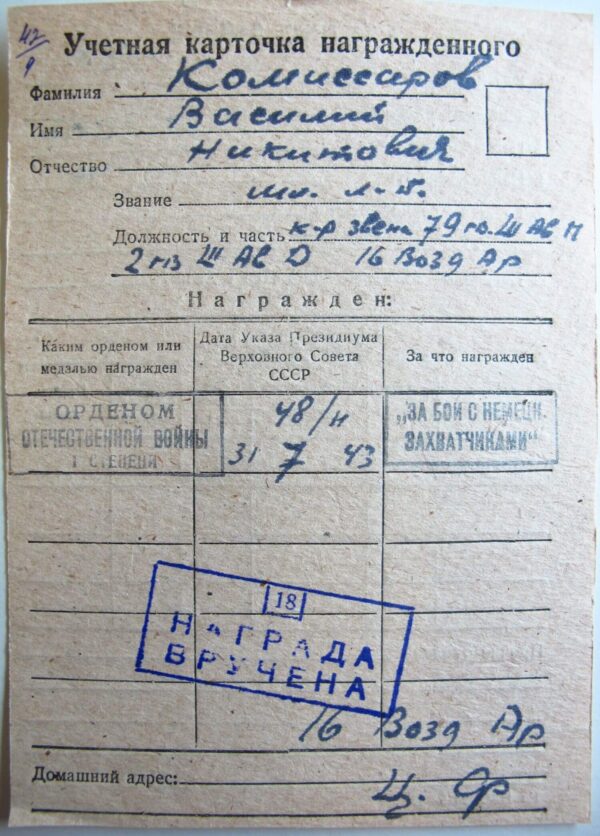 42/9
Учетная карточка награжденного
Фамилия Комиссаров
Имя Василий
Отчество Никитович
Звание мл. л-т.
Должность и часть к-р звена 79 гв. ШАвП
2 гв ШАвД 16 Возд Ар
Награжден:
Каким орденом или медалью награжден
Дата Указа Президиума Верховного Совета СССР
За что награжден
ОРДЕНОМ
ОТЕЧЕСТВЕННОЙ ВОЙНЫ
I СТЕПЕНИ
48/н
31 7 43
„ЗА БОИ С НЕМЕЦК.
ЗАХВАТЧИКАМИ“
18
НАГРАДА
ВРУЧЕНА
16 Возд Ар
Домашний адрес:
Ц. Ф